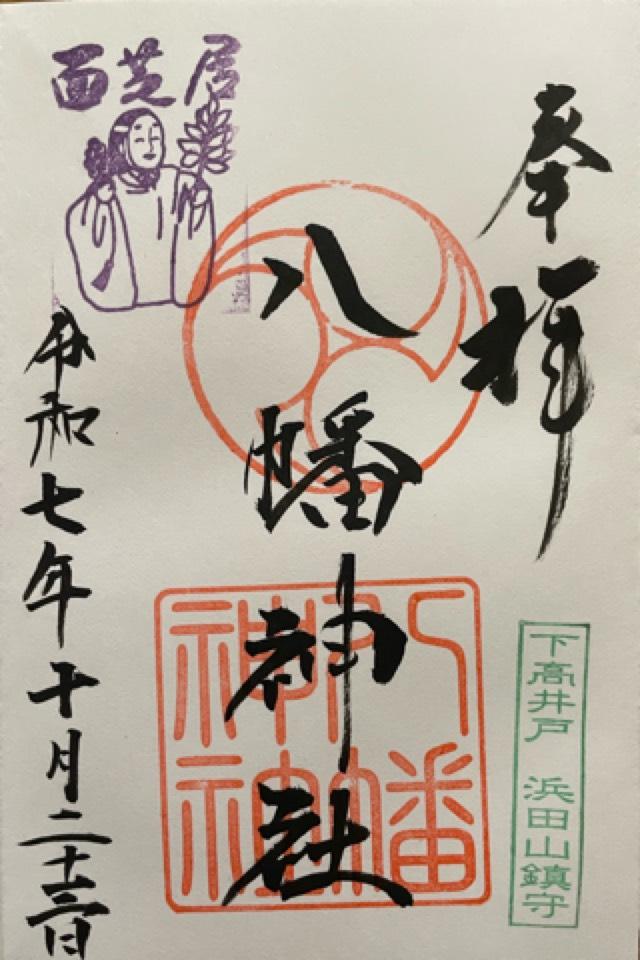 奉拝
下高井戸 浜田山鎮守
八幡神社
八幡
神社
面芝居
令和七年十月二十三日